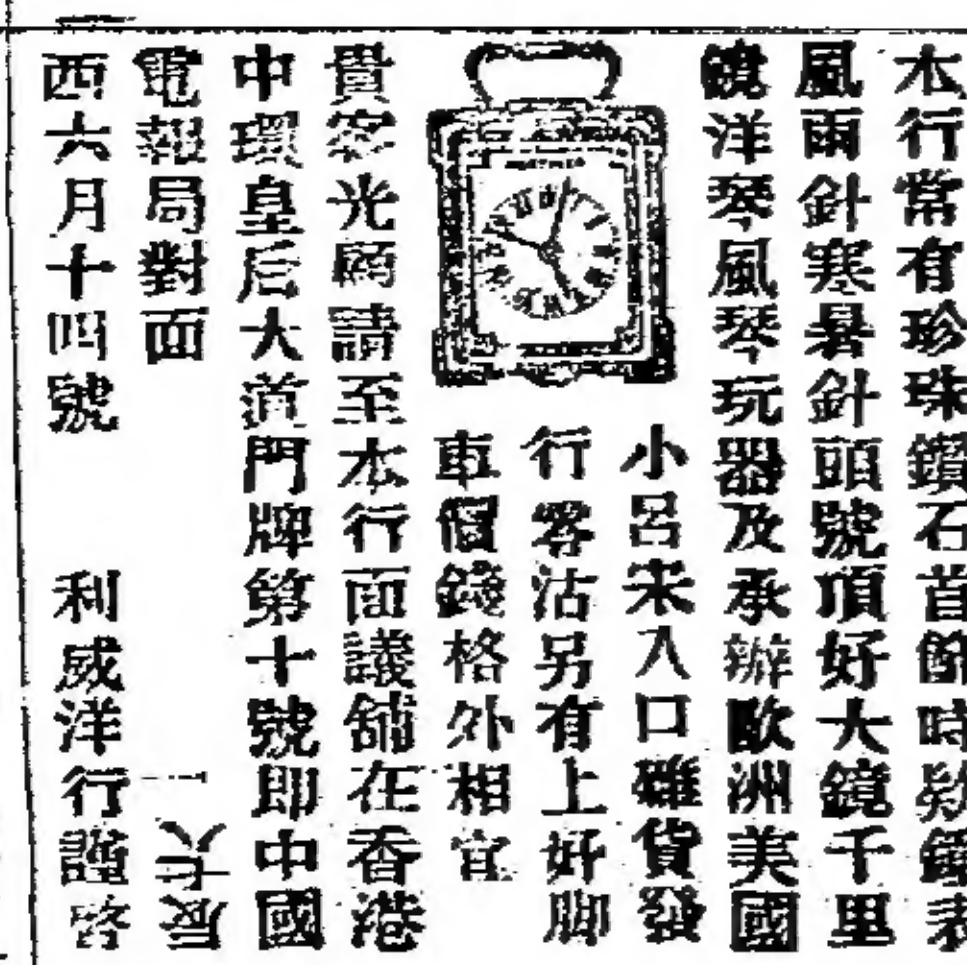 本行常有珍珠鑽石首飾時欵鐘表
風雨針寒暑針頭號頂好大鏡千里
鏡洋琴風琴玩器及承辦歐洲美國
小呂宋入口雜貨發
行客沽另有上好脚
車價錢格外相宜
貴客光顧請至本行面議舖在香港
中環皇后大道門牌第十號即中國
電報局對面
西六月十四號 利威洋行謹啓